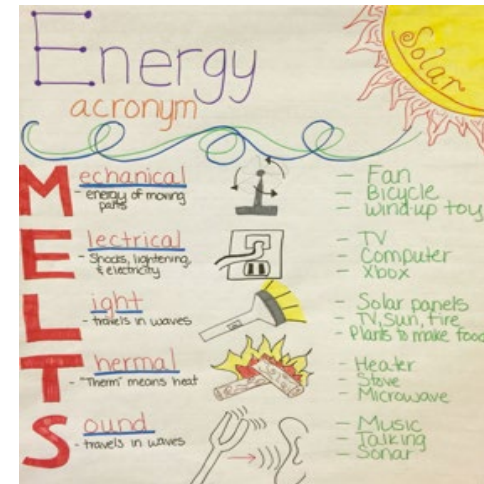 Energy
Solar
acronym
Mechanical
- energy of moving
parts
- Fan
- Bicycle
- wind-up toy
Electrical
- Shocks, lightening,
& electricity
- TV
- Computer
- Xbox
Light
- travels in waves
- Solar panels
- TV, Sun, fire
- Plants to make food
Thermal
- "Therm" means heat
- Heater
- Stove
- Microwave
Sound
- travels in waves
- Music
- Talking
- Sonar